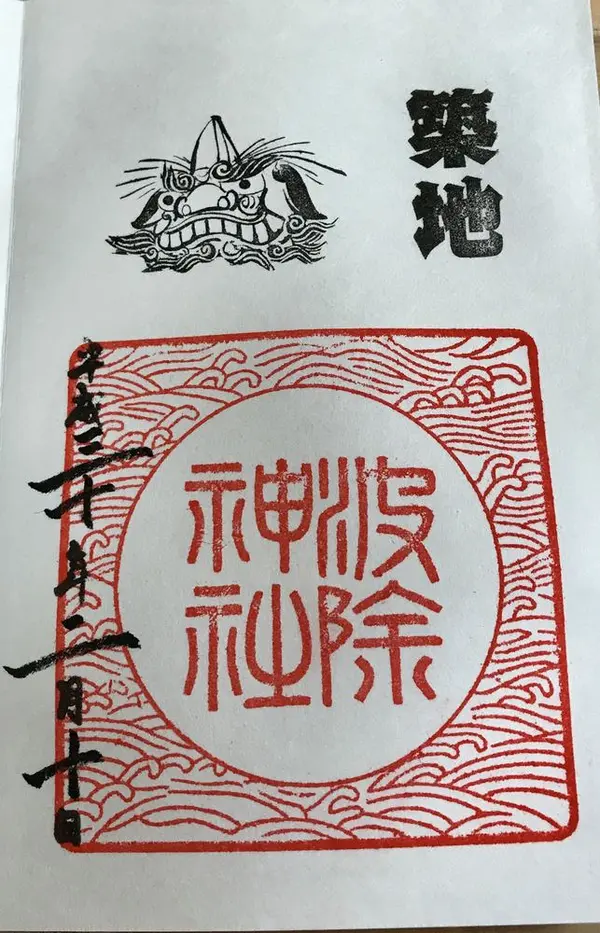 築地
波除
神社
平成三十年二月十日